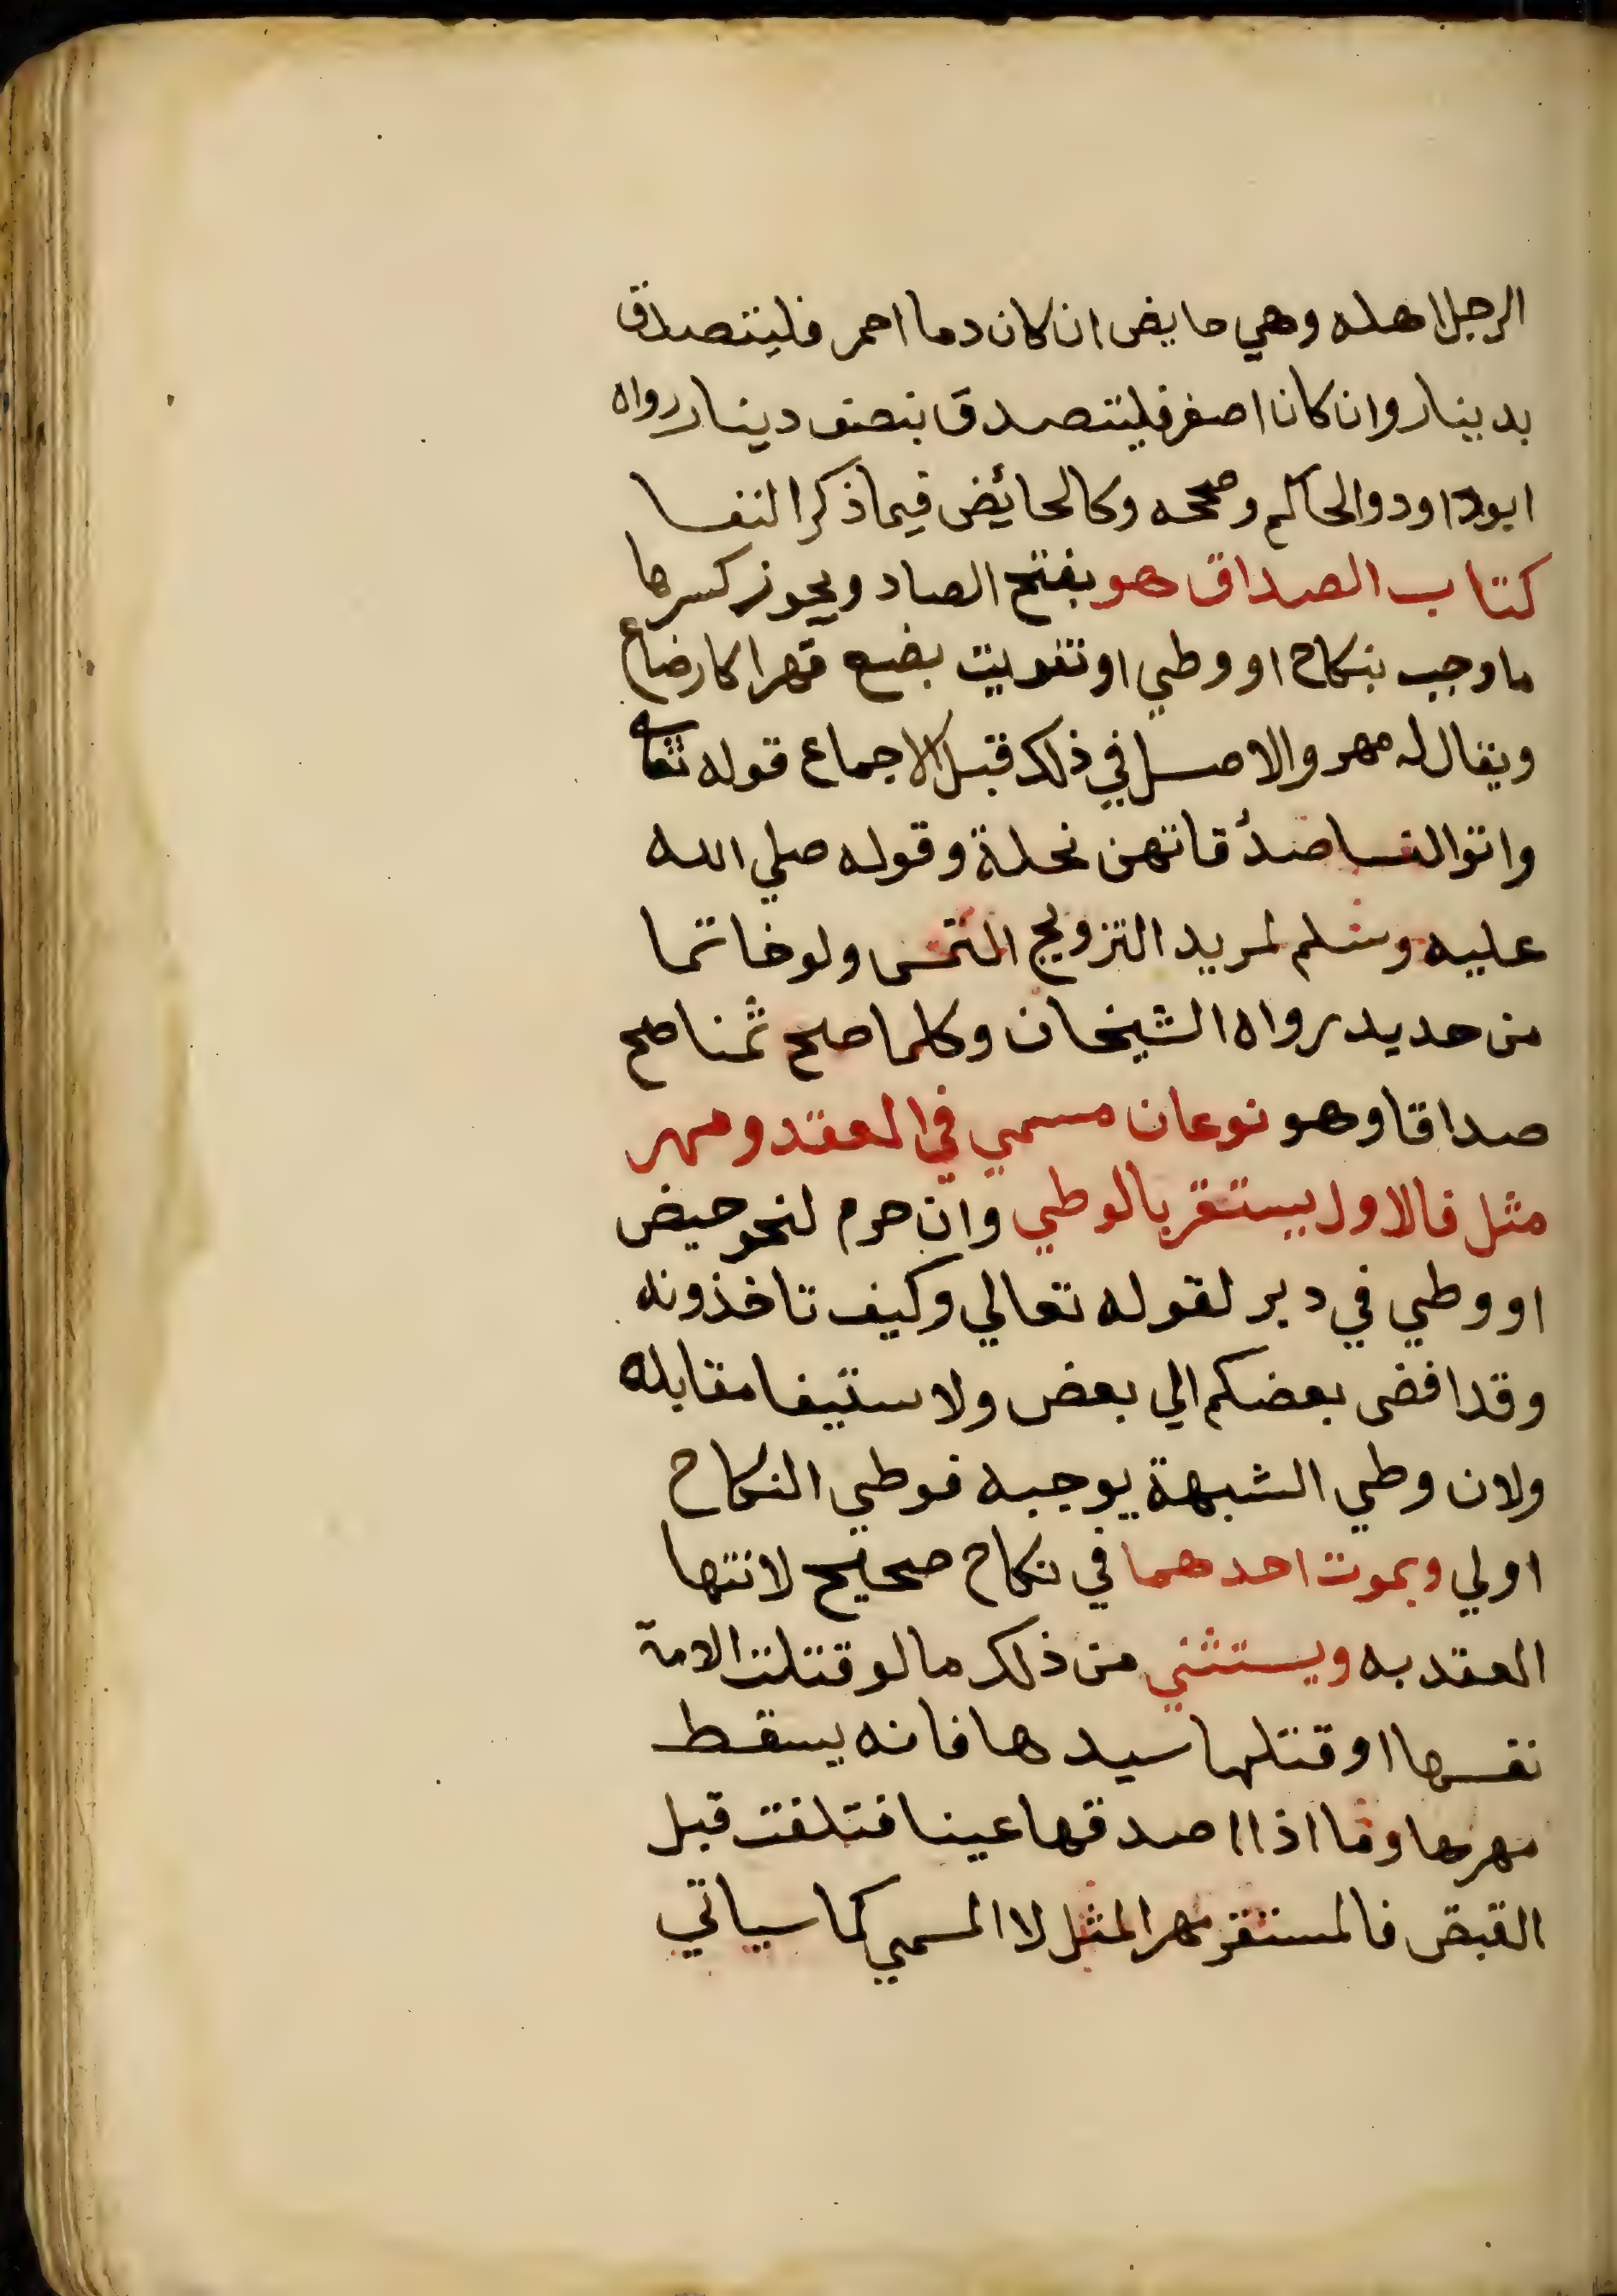 الرجل اهله وهي حايض ان كان دما احمر فليتصدق
بدينار وان كان اصفر فليتصدق بنصف دينار رواه
ابوداود والحاكم وصححه وكالحائض فيما ذكر النفسا
كتاب الصداق هو بفتح الصاد ويجوز كسرها
ما وجب بنكاح او وطي او تفويت بضع قهرا كارضاع
ويقال له مهر والاصل في ذلك قبل الاجماع قوله تعالى
واتوا النسا صدُقاتهن نحلة وقوله صلي الله
عليه وسلم لمريد التزويج التمس ولو خاتما
من حديد رواه الشيخان وكلما صلح ثمنا صح
صداقا وهو نوعان مسمي في العقد ومهر
مثل فالاول يستقر بالوطي وان حرم لنحو حيض
او وطي في دبر لقوله تعالي وكيف تاخذونه
وقد افضى بعضكم الي بعض ولاستيفا مقابله
ولان وطي الشبهة يوجبه فوطي النكاح
اولي وبموت احدهما في نكاح صحيح لانتها
العقد به ويستثني من ذلك ما لو قتلت الامة
نفسها او قتلها سيدها فانه يسقط
مهرها وما اذا اصدقها عينا فتلفت قبل
القبض فالمستقر مهر المثل لا المسمي كما سياتي